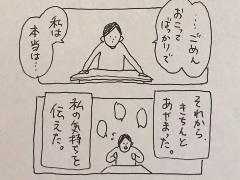 …ごめん
おこって
ばっかりで
私は
本当は…
それから、
きちんと
あやまった。
私の気持ちを
伝えた。